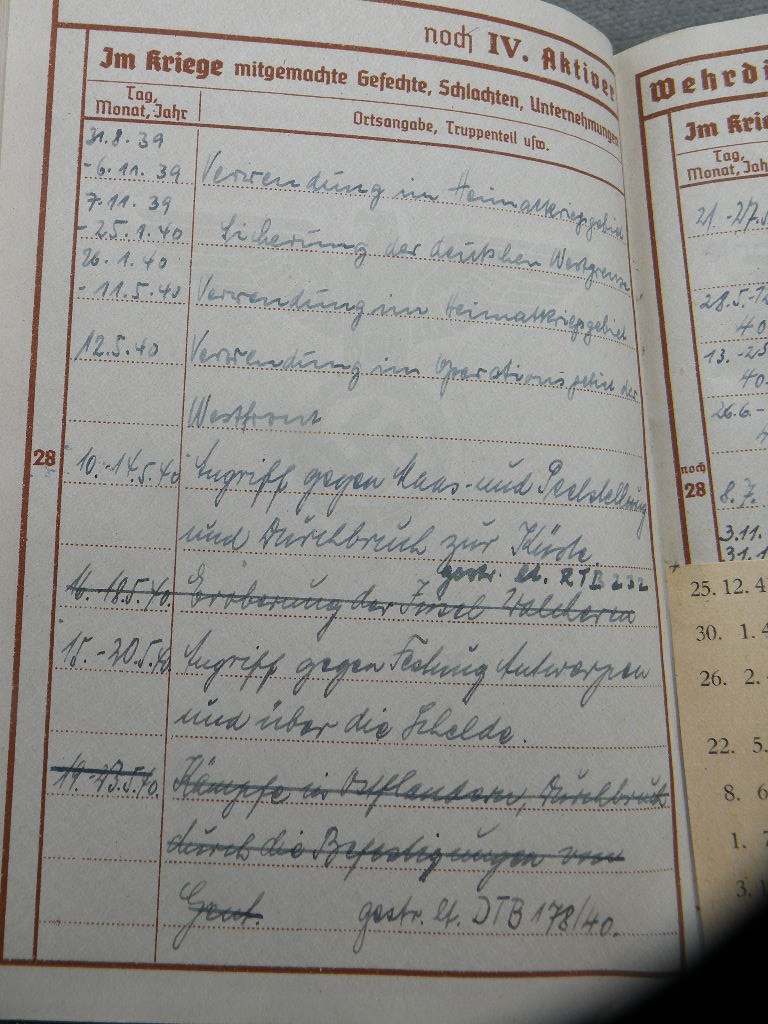 noch IV. Aktiver
Im Kriege mitgemachte Gefechte, Schlachten, Unternehmungen
Tag, Monat, Jahr
Ortsangabe, Truppenteil usw.
31.8.39
-6.11.39 Verwendung im Heimatkriegsgebiet
7.11.39
-25.1.40 Sicherung der deutschen Westgrenze
26.1.40
-11.5.40 Verwendung im Heimatkriegsgebiet
12.5.40 Verwendung im Operationsgebiet der
Westfront
28
10.-14.5.40 Angriff gegen Maas- und Peelstellung
und Durchbruch zur Küste.
gestr. lt. RTB 232
16.-18.5.40. Eroberung der Insel Walcheren
15.-20.5.40. Angriff gegen Festung Antwerpen
und über die Schelde.
19.-23.5.40. Kämpfe in Ostflandern, Durchbruch
durch die Befestigungen von
Gent. gestr. lt. DTB 178/40.
Wehrdi
Im Krie
Tag, Monat, Jahr
21.-27.5
28.5.-
40
13.-25
40.
26.6.-
noch 28
8.7.
3.11.
31.1
25. 12. 4
30. 1. 4
26. 2.
22. 5.
8. 6
1. 7
3. 1